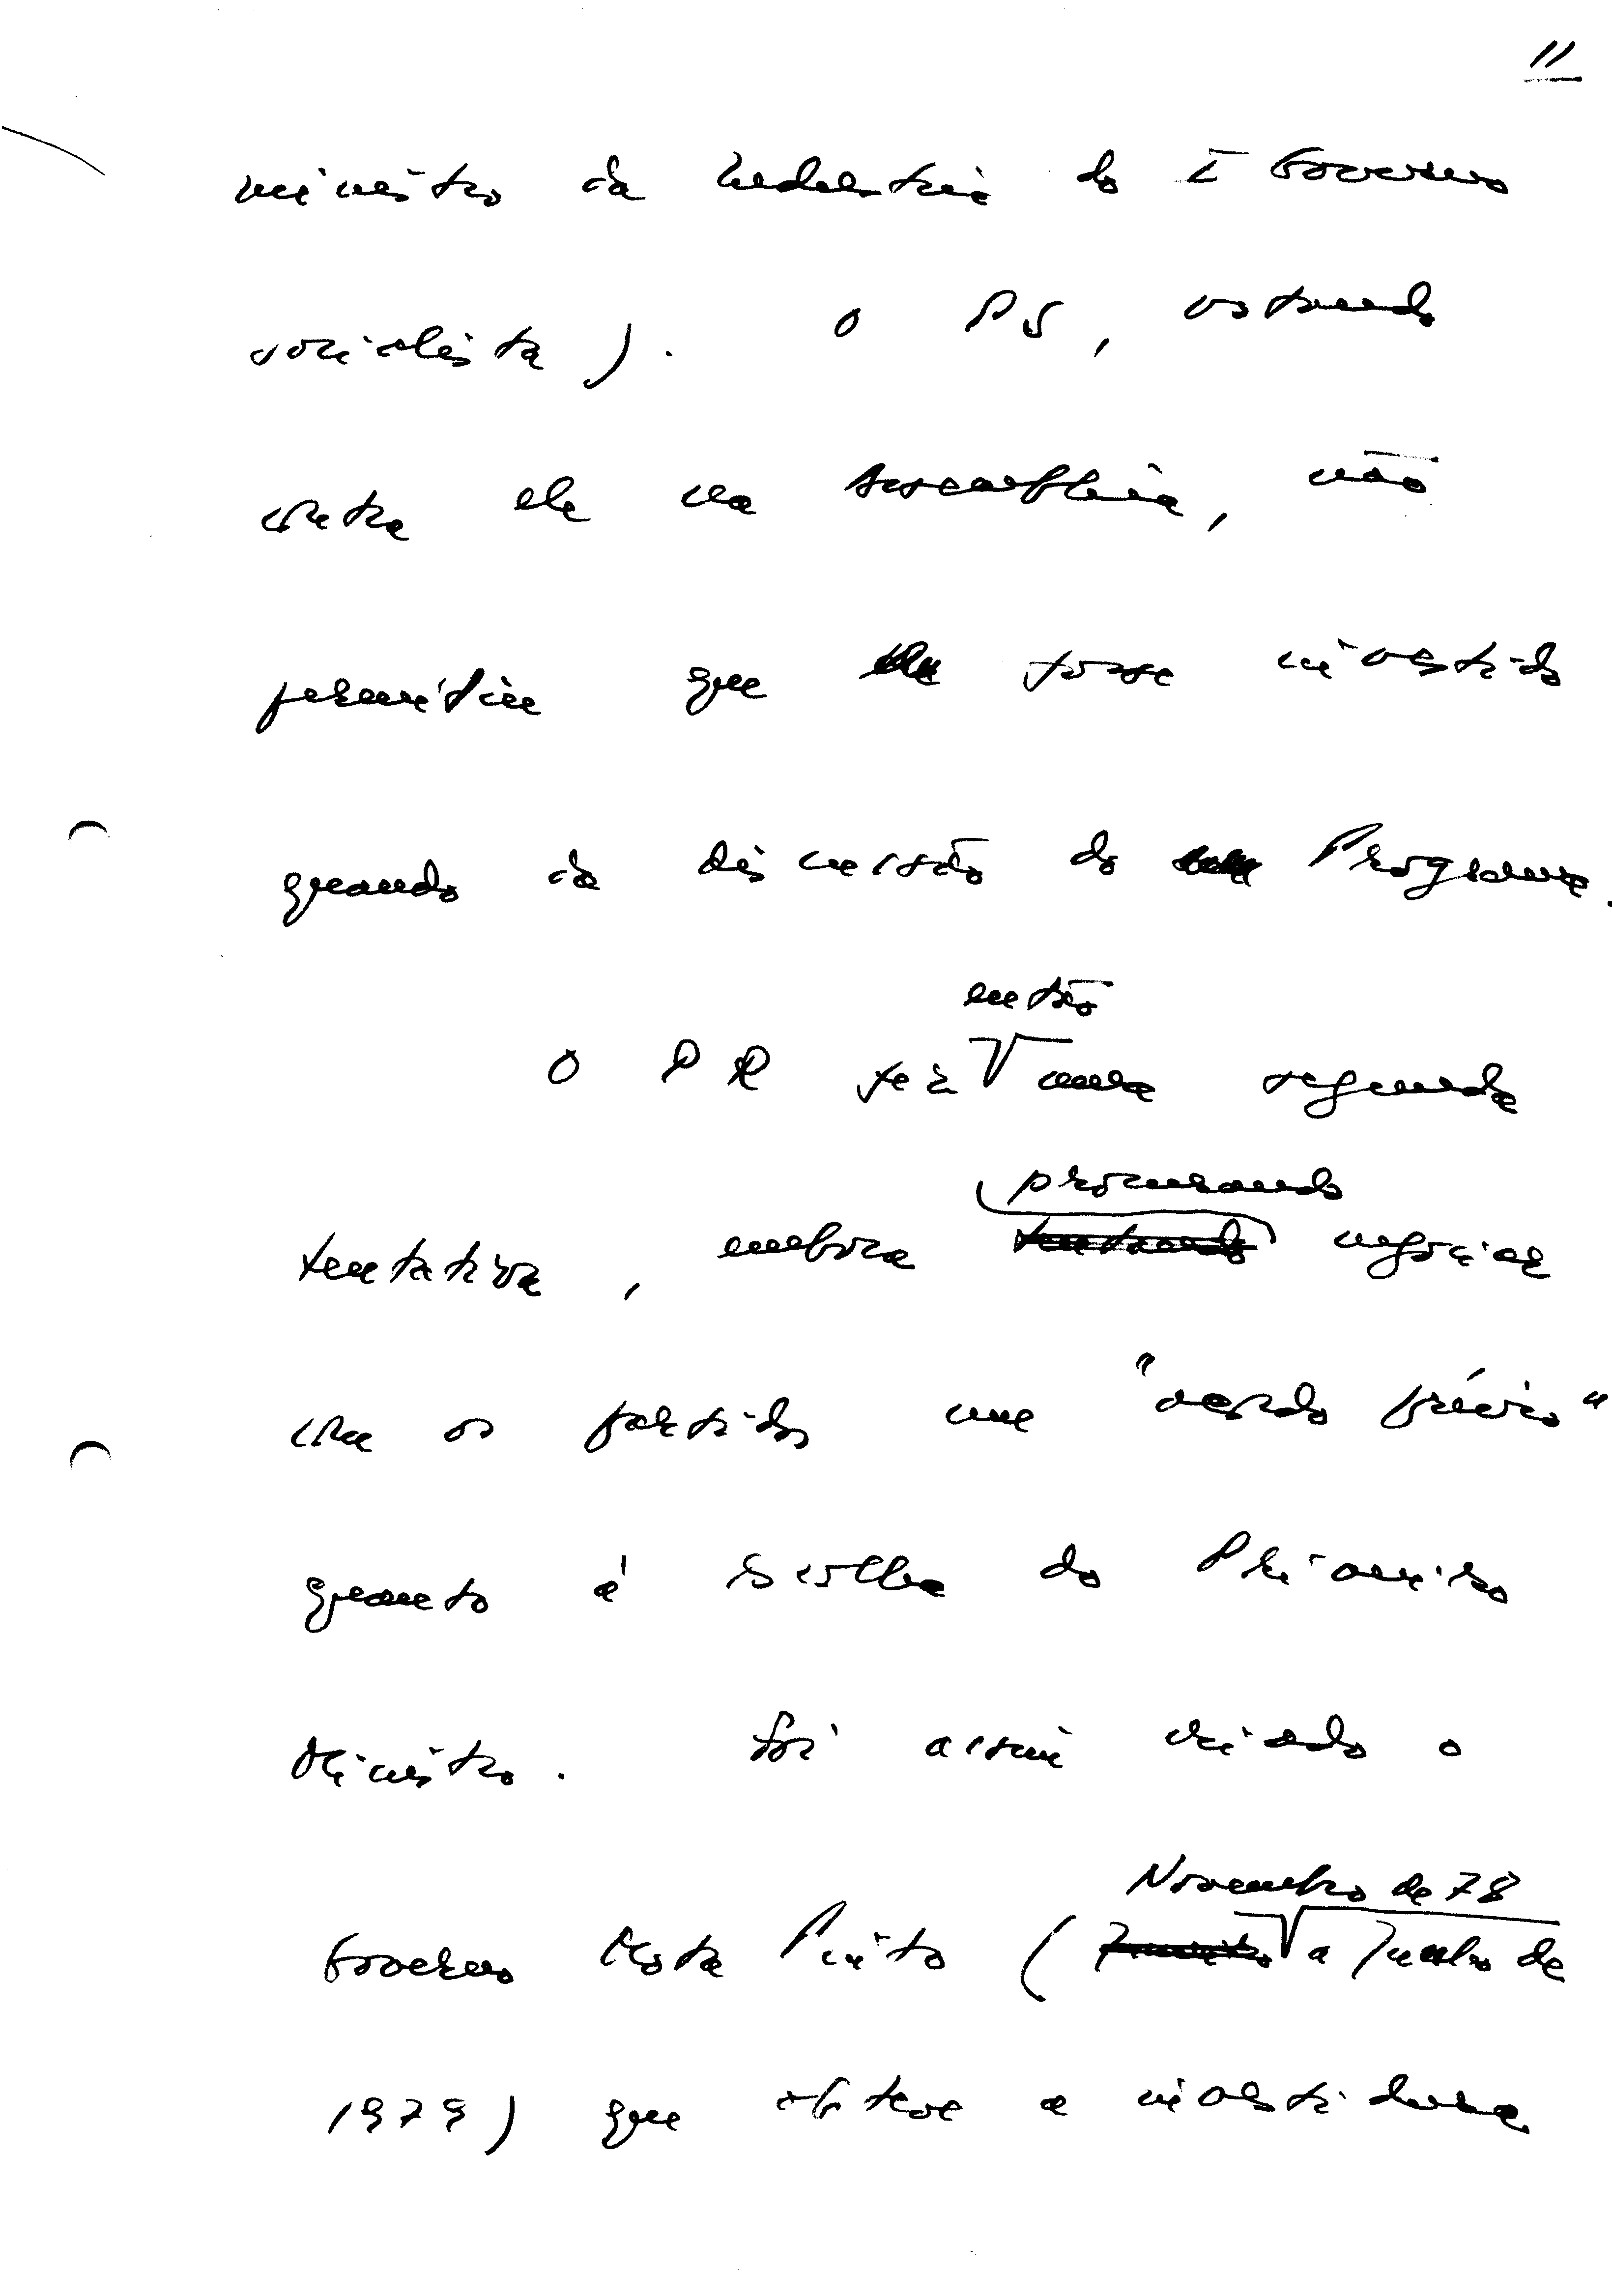 11
ministro da Indústria do I Governo
socialista). O PS, votando
contra ele na Assembleia, não
permitiu que fosse investido
quando da discussão do Programa.
então
O PR fez uma segunda
procurando
tentativa, embora tentando negociar
com os partidos um "acordo prévio"
quanto à escolha do Primeiro
Ministro. Foi assim criado o
Novembro de 78
Governo Mota Pinto ( a Junho de
1979) que obteve a investidura